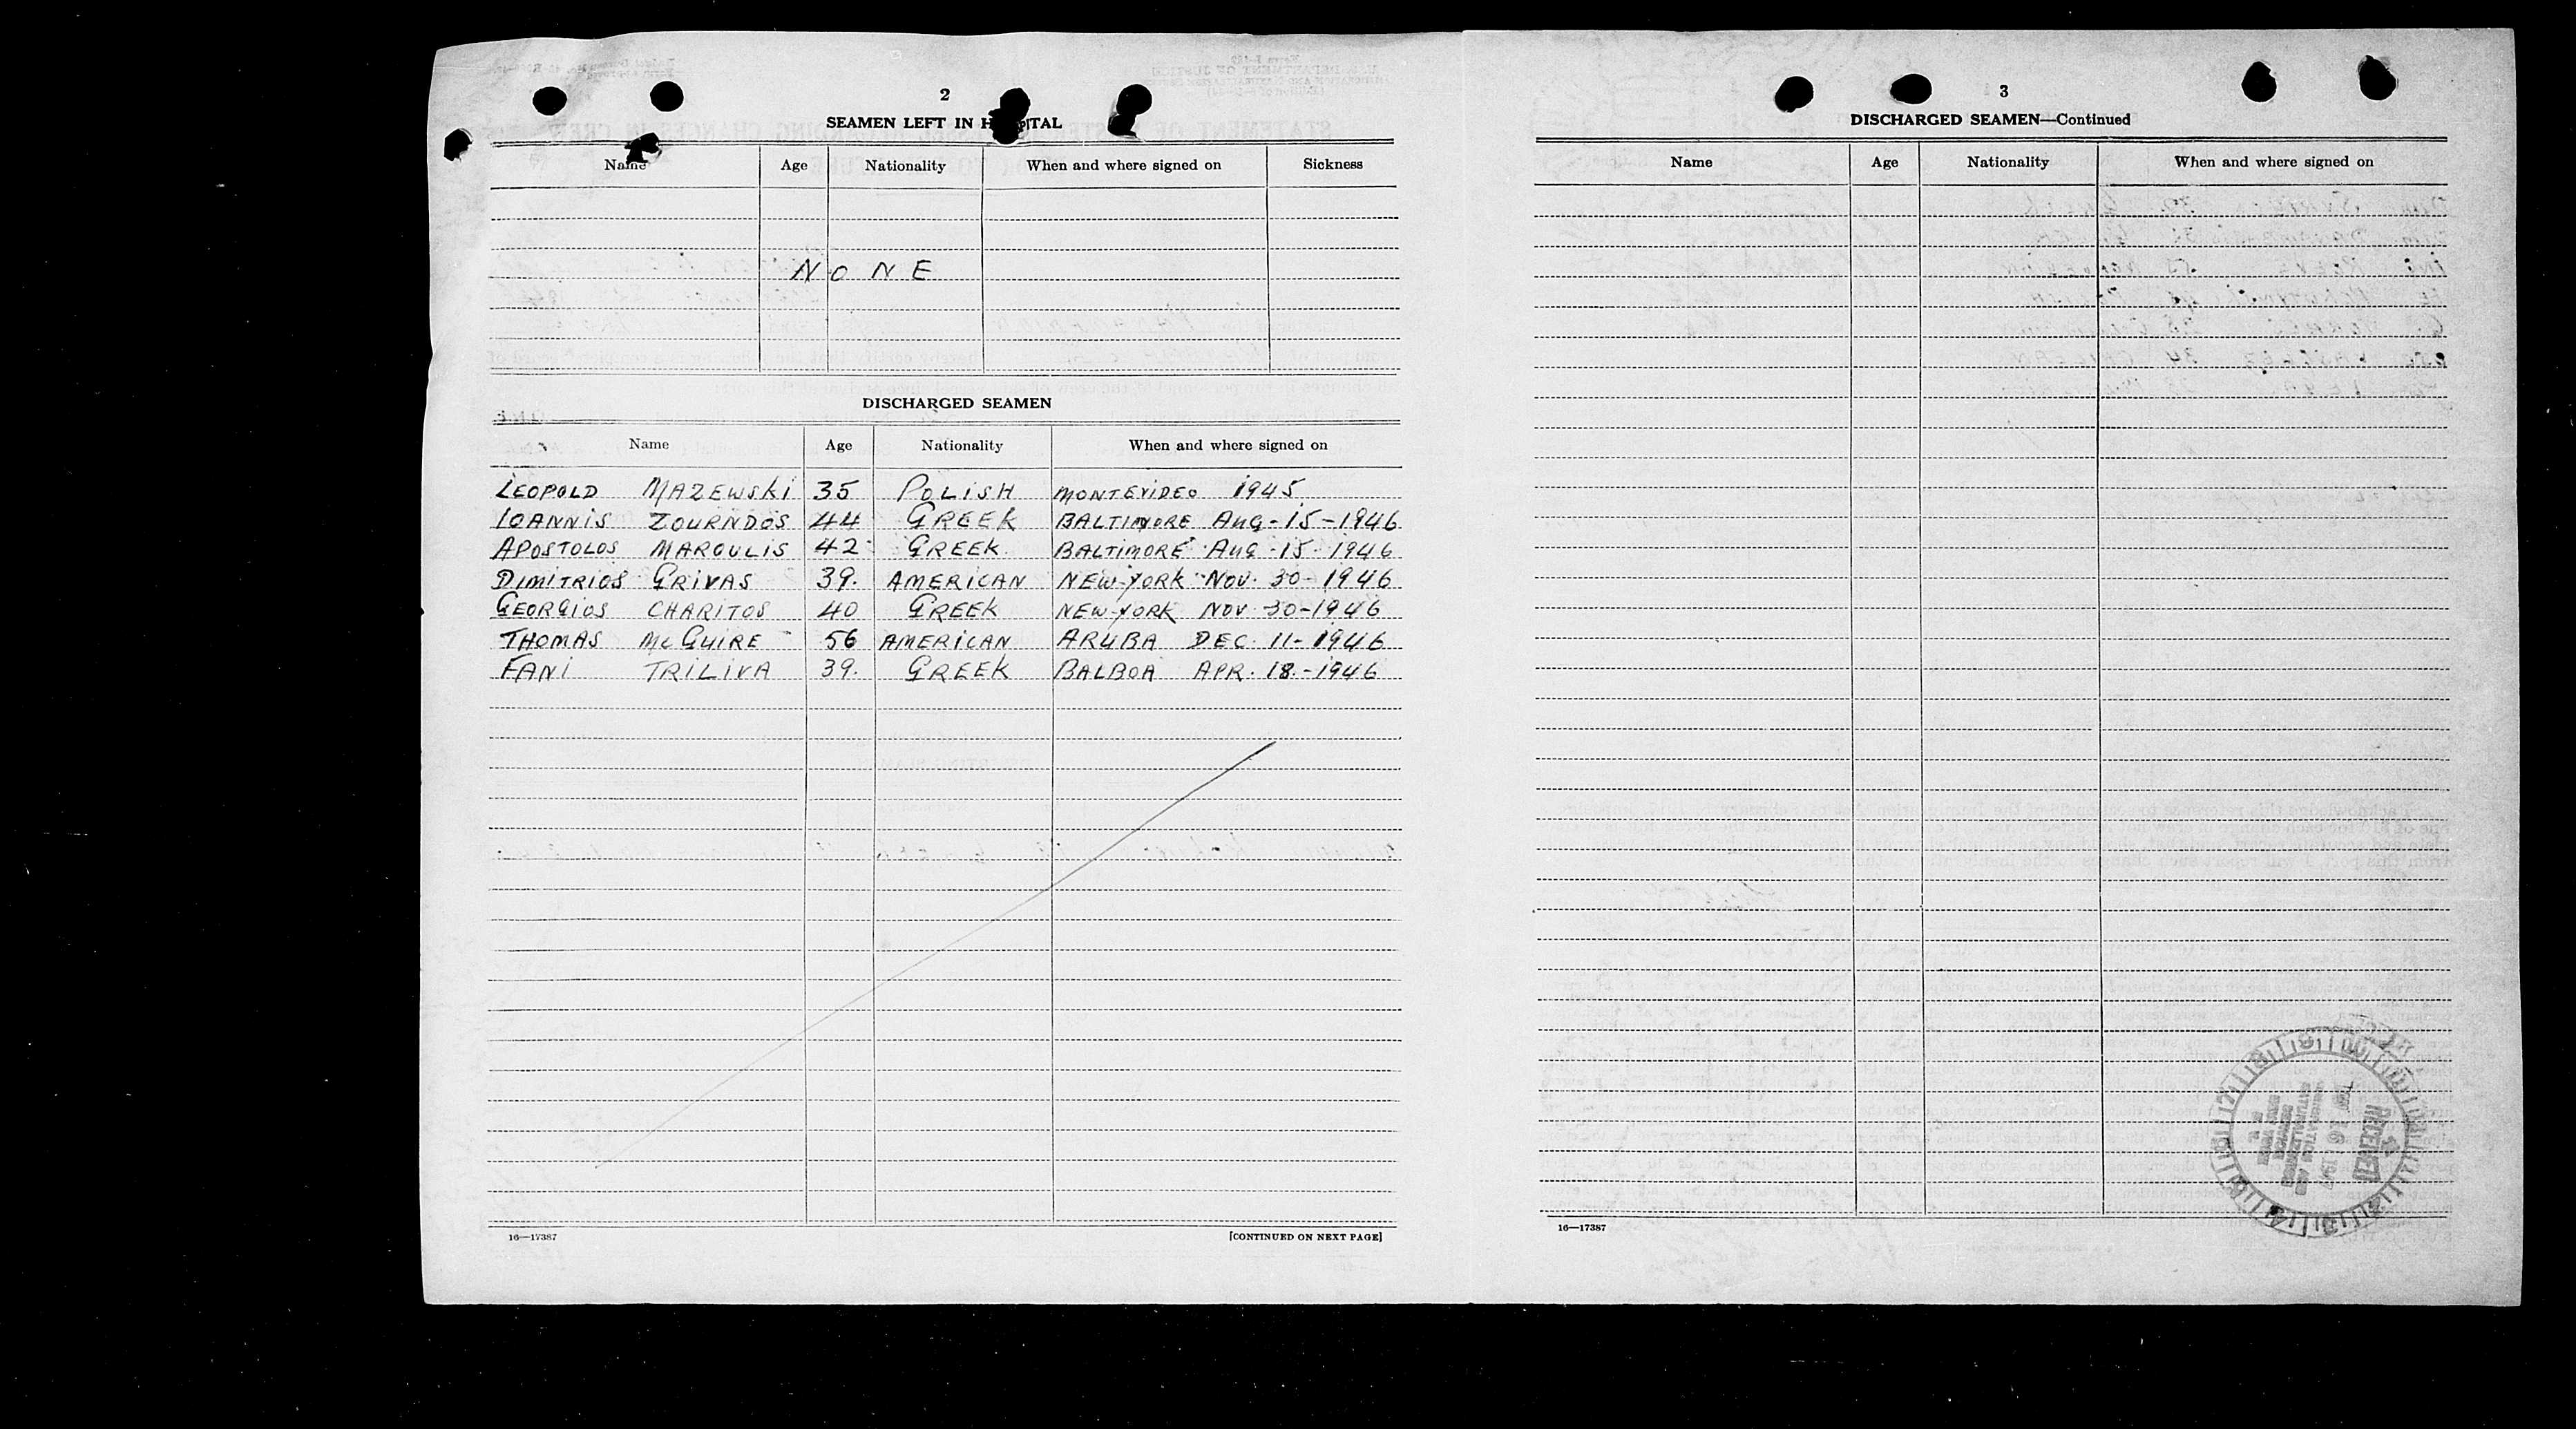 2
SEAMEN LEFT IN HOSPITAL
Name Age Nationality When and where signed on Sickness
NONE
DISCHARGED SEAMEN
Name Age Nationality When and where signed on
LEOPOLD MAZEWSKI 35 POLISH MONTEVIDEO 1945
IOANNIS ZOURNDOS 44 GREEK BALTIMORE AUG-15-1946
APOSTOLOS MAROULIS 42 GREEK BALTIMORE AUG-15-1946
DIMITRIOS GRIVAS 39. AMERICAN NEW-YORK NOV. 30-1946
GEORGIOS CHARITOS 40 GREEK NEW-YORK NOV 30-1946
THOMAS McGUIRE 56 AMERICAN ARUBA DEC. 11-1946
FANI TRILIVA 39. GREEK BALBOA APR. 18.-1946
16—17387
[CONTINUED ON NEXT PAGE]
3
DISCHARGED SEAMEN—Continued
Name Age Nationality When and where signed on
RECEIVED
16 1947
16—17387